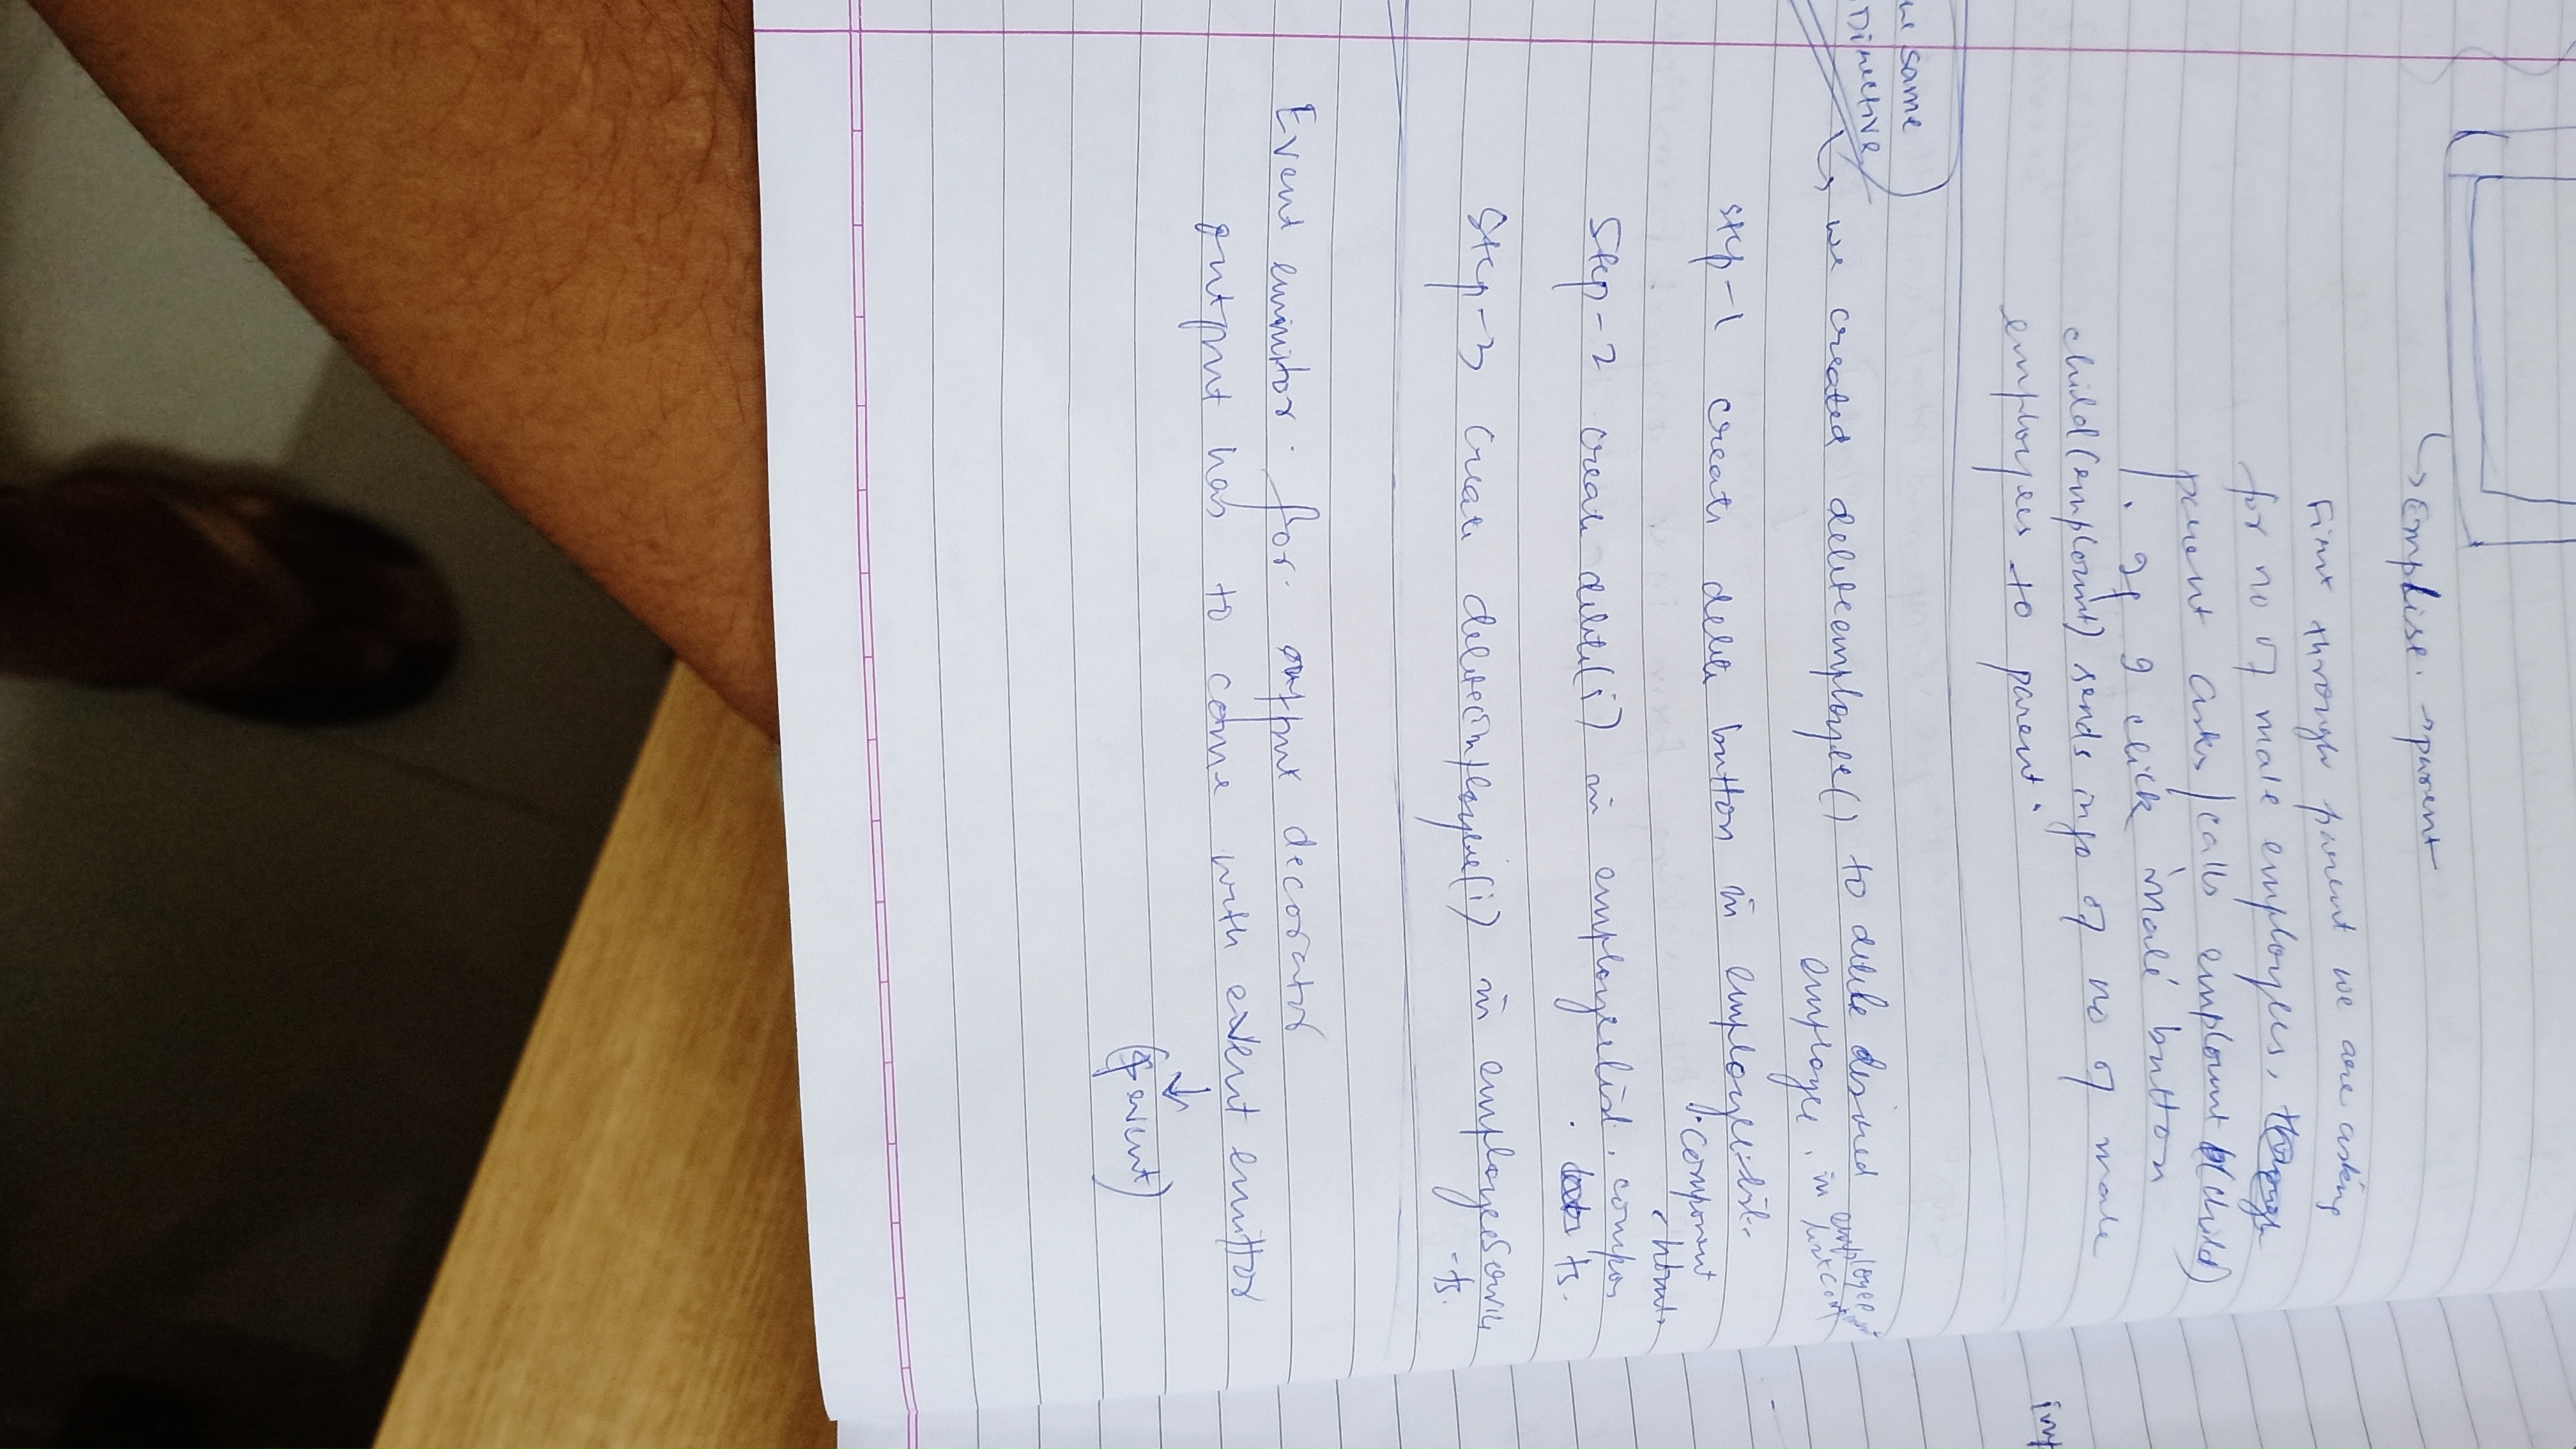 ↳ Emplist. → parent
First through parent we are asking
for no of male employees,
parent asks/calls empcount (child)
. If I click 'male' button
child(empcount) sends info of no of male
employees to parent.
same
Directive
↳ we created deleteemployee() to delete desired
employee, in employee
step-1 create delete button in employeelist.
.component
.html
Step-2 create delete(i) in employeelist.compon
. ts.
Step-3 create deleteemployee(i) in employeeService
.ts.
Event emmitor. for. output decorator
output has to come with event emittor
↓
($event)